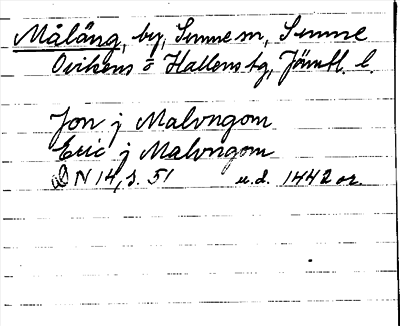 Målång, by, Sunne sn, Sunne
Ovikens o Hallens tg, Jämtl. l.
Jon j Malongom
Eric j Malongom
DN 14, s. 51 u.d. 1442 or.